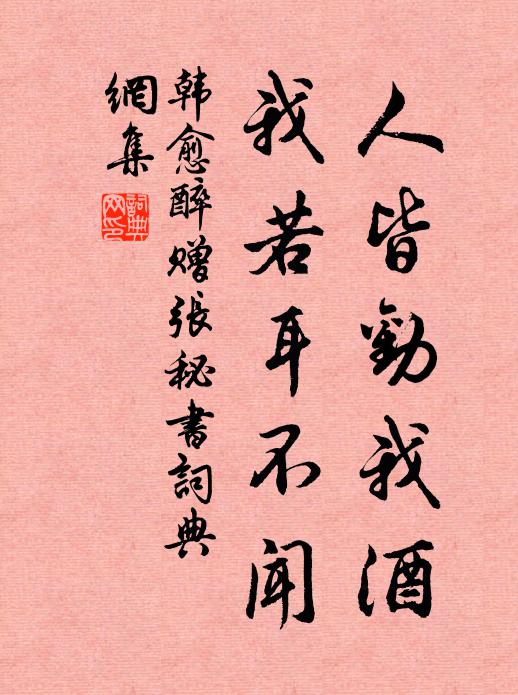 人皆勸我酒
我若耳不聞
韩愈醉赠張秘書詞典
網集
詞典
网印